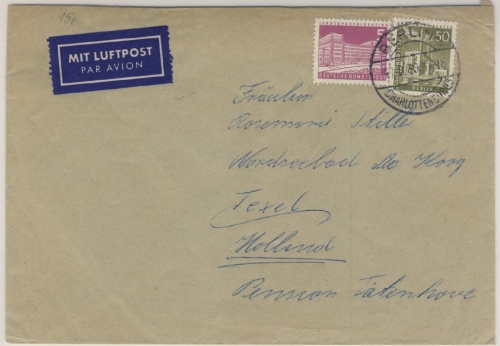 15e
MIT LUFTPOST
PAR AVION
DEUTSCHE BUNDESPOST
50
BERLIN
BERLIN
CHARLOTTENBURG
Fräulein
Rosemarie Stille
Nordseebad De Koog
Texel
Holland
Pension Tatenhove